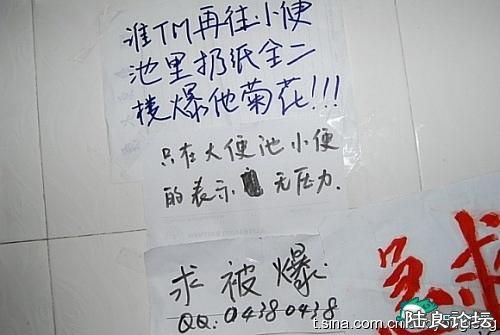 谁TM再往小便
池里扔纸全二
楼爆他菊花!!!
只在大便池小便
的表示 无压力.
求被爆.
QQ:04380438
急求
t.sina.com.cn
陆良论坛